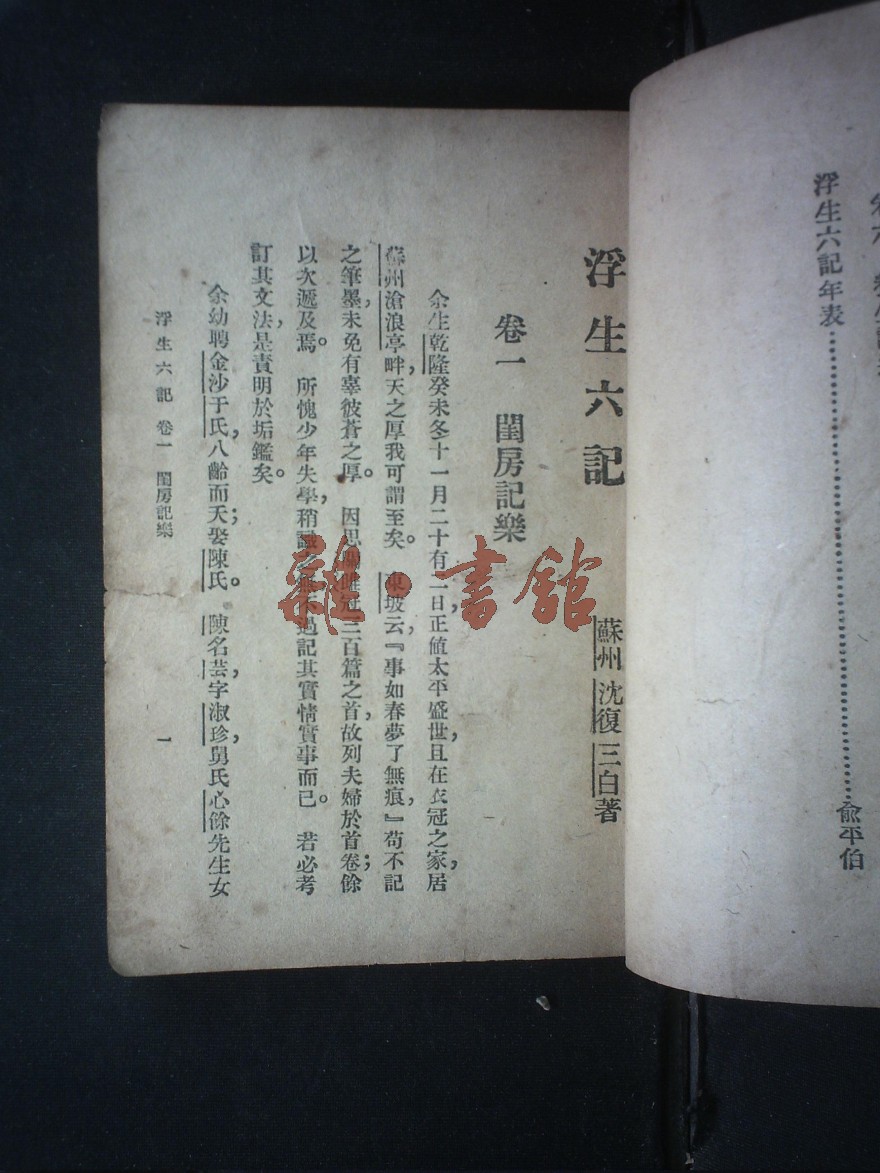 浮生六記年表……………………………………俞平伯
浮生六記
蘇州 沈復 三白著
卷一 閨房記樂
余生乾隆癸未冬十一月二十有二日，正值太平盛世，且在衣冠之家，居
蘇州滄浪亭畔，天之厚我可謂至矣。東坡云，『事如春夢了無痕，』苟不記
之筆墨，未免有辜彼蒼之厚。因思關雎冠三百篇之首，故列夫婦於首卷；餘
以次遞及焉。所愧少年失學，稍識之無，不過記其實情實事而已。若必考
訂其文法，是責明於垢鑑矣。
余幼聘金沙于氏，八齡而夭；娶陳氏。陳名芸，字淑珍，舅氏心餘先生女
浮生六記 卷一 閨房記樂
一
雜·書館